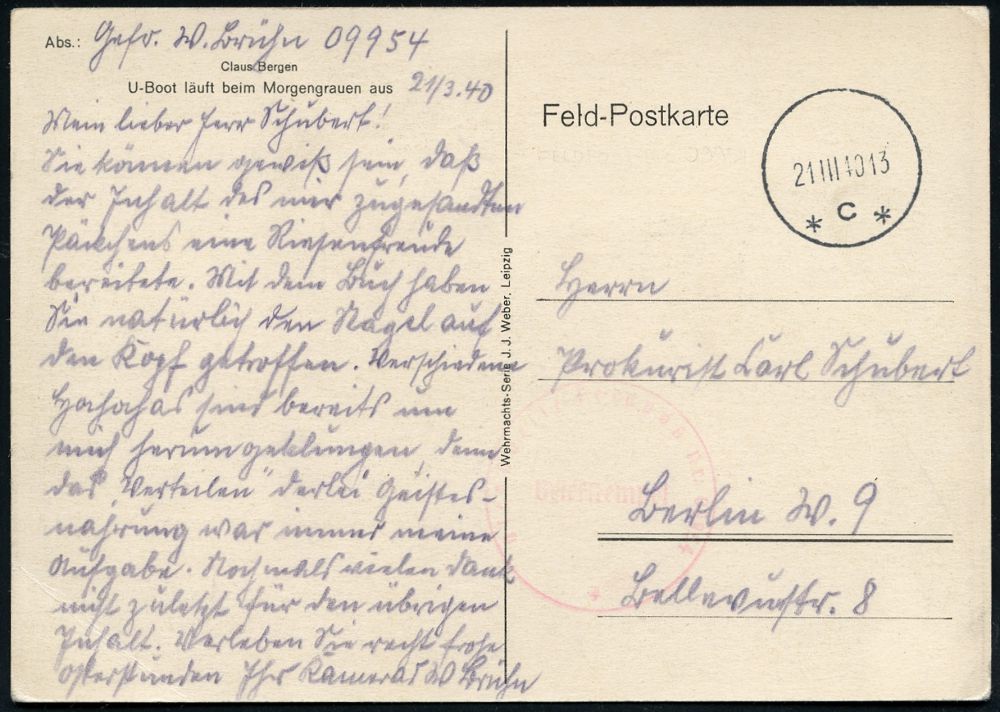 Abs.: Gefr. W. Brühn 09954
Claus Bergen
U-Boot läuft beim Morgengrauen aus
21/3.40
Mein lieber Herr Schubert!
Sie können gewiß sein, daß
der Inhalt des mir zugesandten
Päckchens eine Riesenfreude
bereitete. Mit dem Buch haben
Sie natürlich den Nagel auf
den Kopf getroffen. Verschiedene
Hahahas sind bereits um
mich herum geklungen, denn
das "Verteilen" derlei Geistes-
nahrung war immer meine
Aufgabe. Nochmals vielen Dank
nicht zuletzt für den übrigen
Inhalt. Verleben Sie recht frohe
Osterstunden Ihr Kamerad W Brühn
Wehrmachts-Serie J. J. Weber, Leipzig
Feld-Postkarte
21 III 40 13
* C *
Herrn
Prokurist Carl Schubert
Berlin W. 9
Bellevuestr. 8
Briefstempel